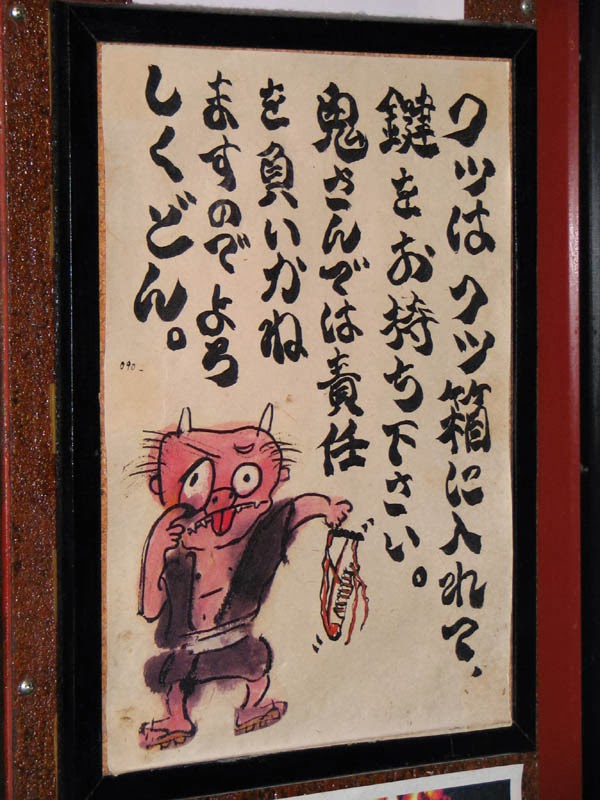 クツはクツ箱に入れて、
鍵をお持ち下さい。
鬼さんでは責任
を負いかね
ますのでよろ
しくどん。
090-